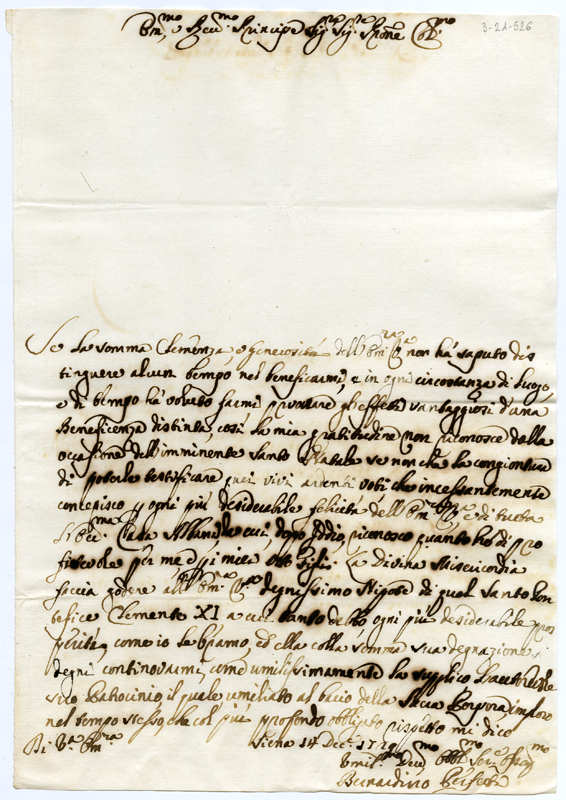 Em.mo, e Rev.mo Principe Sig.re Sig.re Prone Col.mo
3-21-526
Se la somma Clemenza, e Generosità dell'Em.za V.a non há saputo dis
tinguere alcun tempo nel beneficarmi, e in ogni circostanza di luogo
e di tempo há voluto farmi provare gl'effetti vantaggiosi d'una
Beneficenza distinta, così la mia gratitudine non riconosce dalla
occasione dell'imminente Santo Natale se non che la congiontura
di poterle testificare quei vivi ardenti voti che incessantemente
concepisco p ogni più desiderabile felicità dell'Em.za V.a e di tutta
l'Ecc.ma Casa Albani, la cui, dopo Iddio, riconosco quanto hò di pro
fittevole per me e p i miei otto figli. La Divina Misericordia
faccia godere all'Em.za V.a degnissimo Nipote di quel Santo Pon
tefice Clemente XI a cui tanto debbo ogni più desiderabile pros
perità, come io la bramo, ed ella colla somma sua degnazione si
degni continovarmi, come umilissimamente la supplico
suo Patrocinio il quale umiliato al bacio della Sacra Porpora imploro
nel tempo stesso, che col più profondo obbligato rispetto mi dico
Di V.a Em.za Siena 14 Dec.e
Umil.mo Dev.mo Obb.mo Ser.e
Bernardino Perfetti